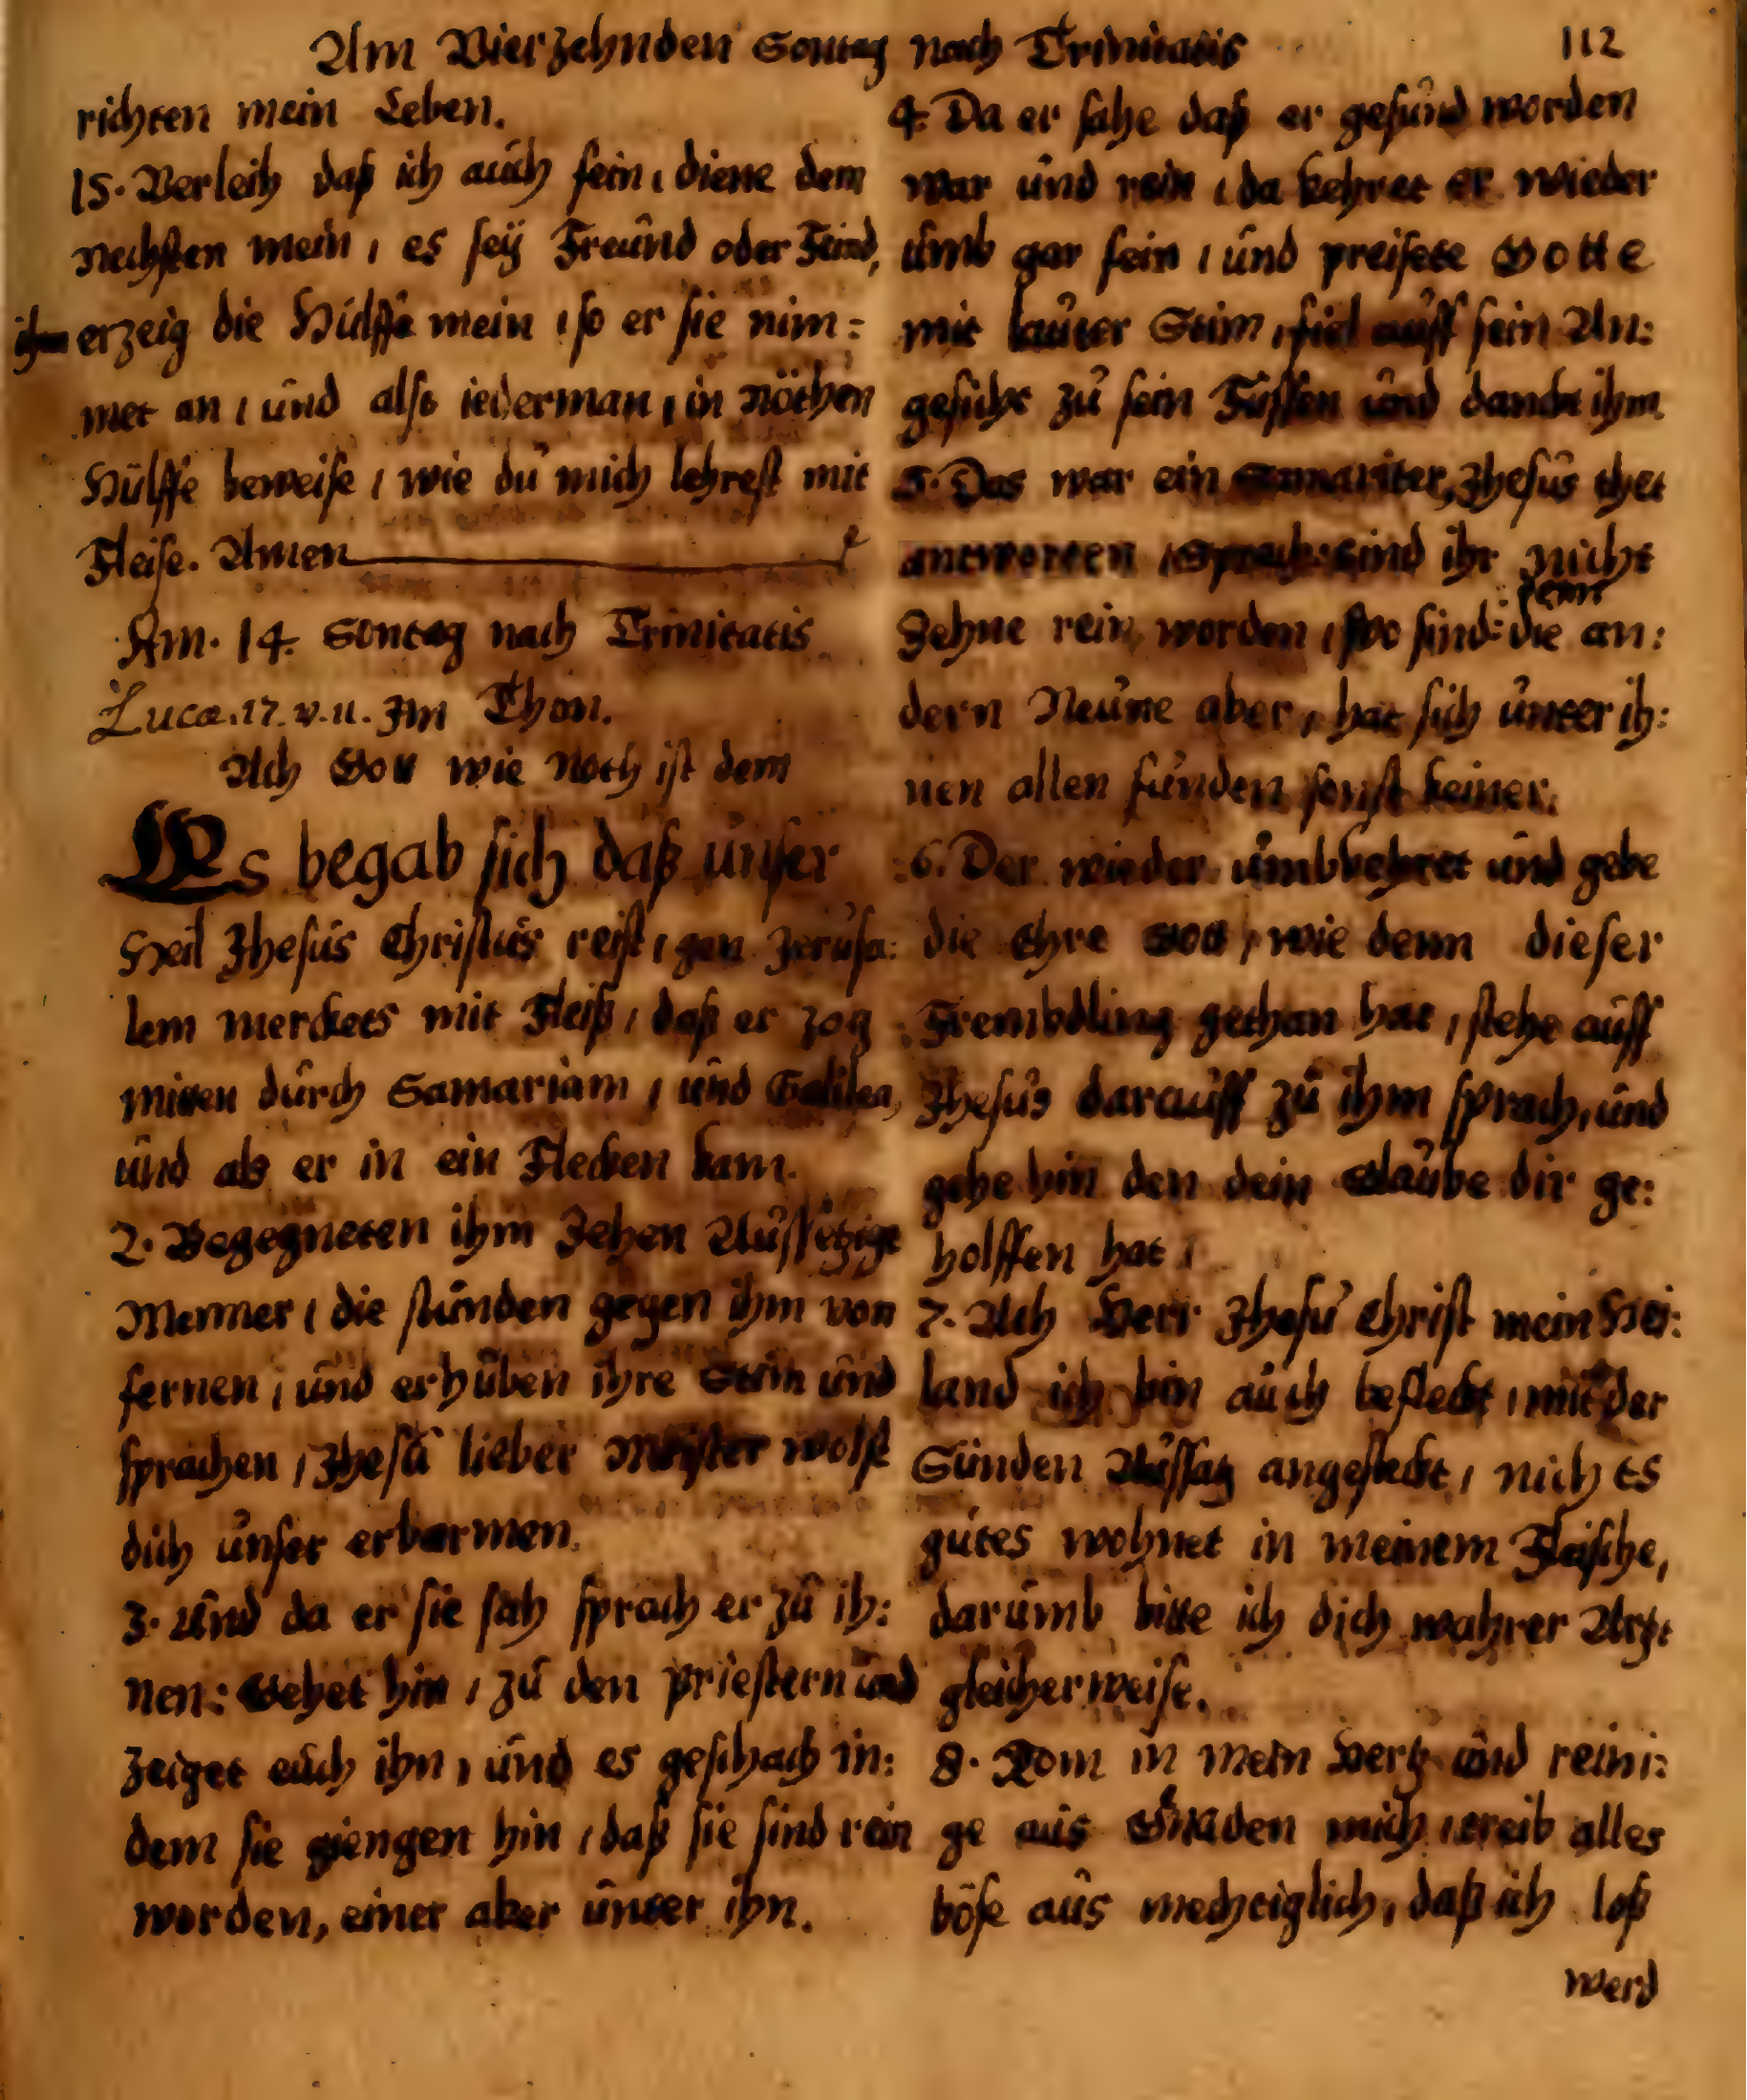 Am Vierzehnden Sontag nach Trinitatis 112
richten mein Leben.
15. Verleih daß ich auch fein, diene dem
nechsten mein, es seÿ Freund oder Feind,
ihm erzeig die Hülffe mein, so er sie nim=
met an, und also iederman, in nöthen
Hülffe beweise, wie du mich lehrest mit
Fleise. Amen
Am. 14. Sontag nach Trinitatis
Lucæ. 17. v. 11. Im Thon.
Ach Gott wie noth ist dem
Es begab sich daß unser
Heil Jhesus Christus reist, gen Jerusa:
lem merckets mit Fleiß, daß er zog
mitten durch Samariam, und Galilea,
und als er in ein Flecken kam.
2. Begegneten ihm Zehen Aussetzige
Menner, die stunden gegen ihm von
fernen, und erhuben ihre Stim und
sprachen, Jhesu lieber Meister wolst
dich unser erbarmen.
3. Und da er sie sah sprach er zu ih:
nen: Gehet hin, zu den priestern und
zeiget euch ihn, und es geschach in:
dem sie giengen hin, daß sie sind rein
worden, einer aber unter ihn.
4. Da er sahe daß er gesund worden
war und rein, da kehret er wieder
umb gar fein, und preisete Gotte
mit lauter Stim, fiel auff sein An:
gesicht zu sein Füssen und danckt ihm.
5. Das war ein Samariter, Jhesus thet
antworten, Sprach: sind ihr nicht
denn
Zehne rein worden, wo sind: die an:
dern Neune aber, hat sich unter ih:
nen allen funden sonst keiner.
6. Der wieder umbkehret und gebe
die Ehre Gott, wie denn dieser
Frembdling gethan hat, stehe auff
Jhesus darauff zu ihm sprach, und
gehe hin den dein Glaube dir ge:
holffen hat,
7. Ach Herr Jhesu Christ mein Hei:
land ich bin auch befleckt, mit der
Sünden Aussatz angesteckt, nichts
gutes wohnet in meinem Fleische,
darumb bitte ich dich wahrer Artzt
gleicherweise.
8. Kom in mein Hertz und reini:
ge aus Gnaden mich, treib alles
böse aus mechtiglich, daß ich loß
werd